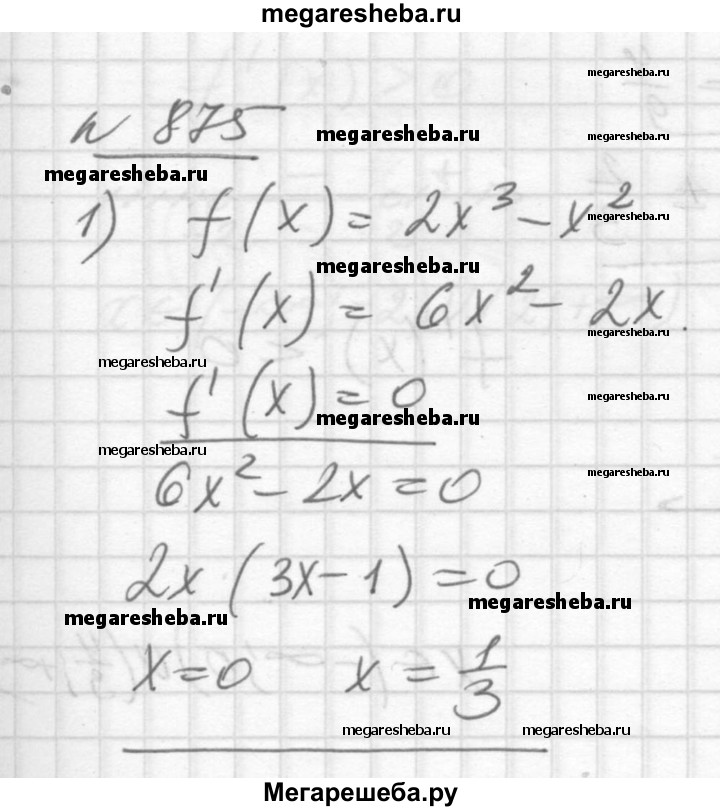 megaresheba.ru
megaresheba.ru
№ 875
megaresheba.ru
megaresheba.ru
1) f(x) = 2x³ - x²
megaresheba.ru
megaresheba.ru
f'(x) = 6x² - 2x.
megaresheba.ru
megaresheba.ru
f'(x) = 0
megaresheba.ru
megaresheba.ru
megaresheba.ru
6x² - 2x = 0
megaresheba.ru
2x (3x - 1) = 0
megaresheba.ru
megaresheba.ru
x = 0 x = 1/3
megaresheba.ru megaresheba.ru
Мегарешеба.ру